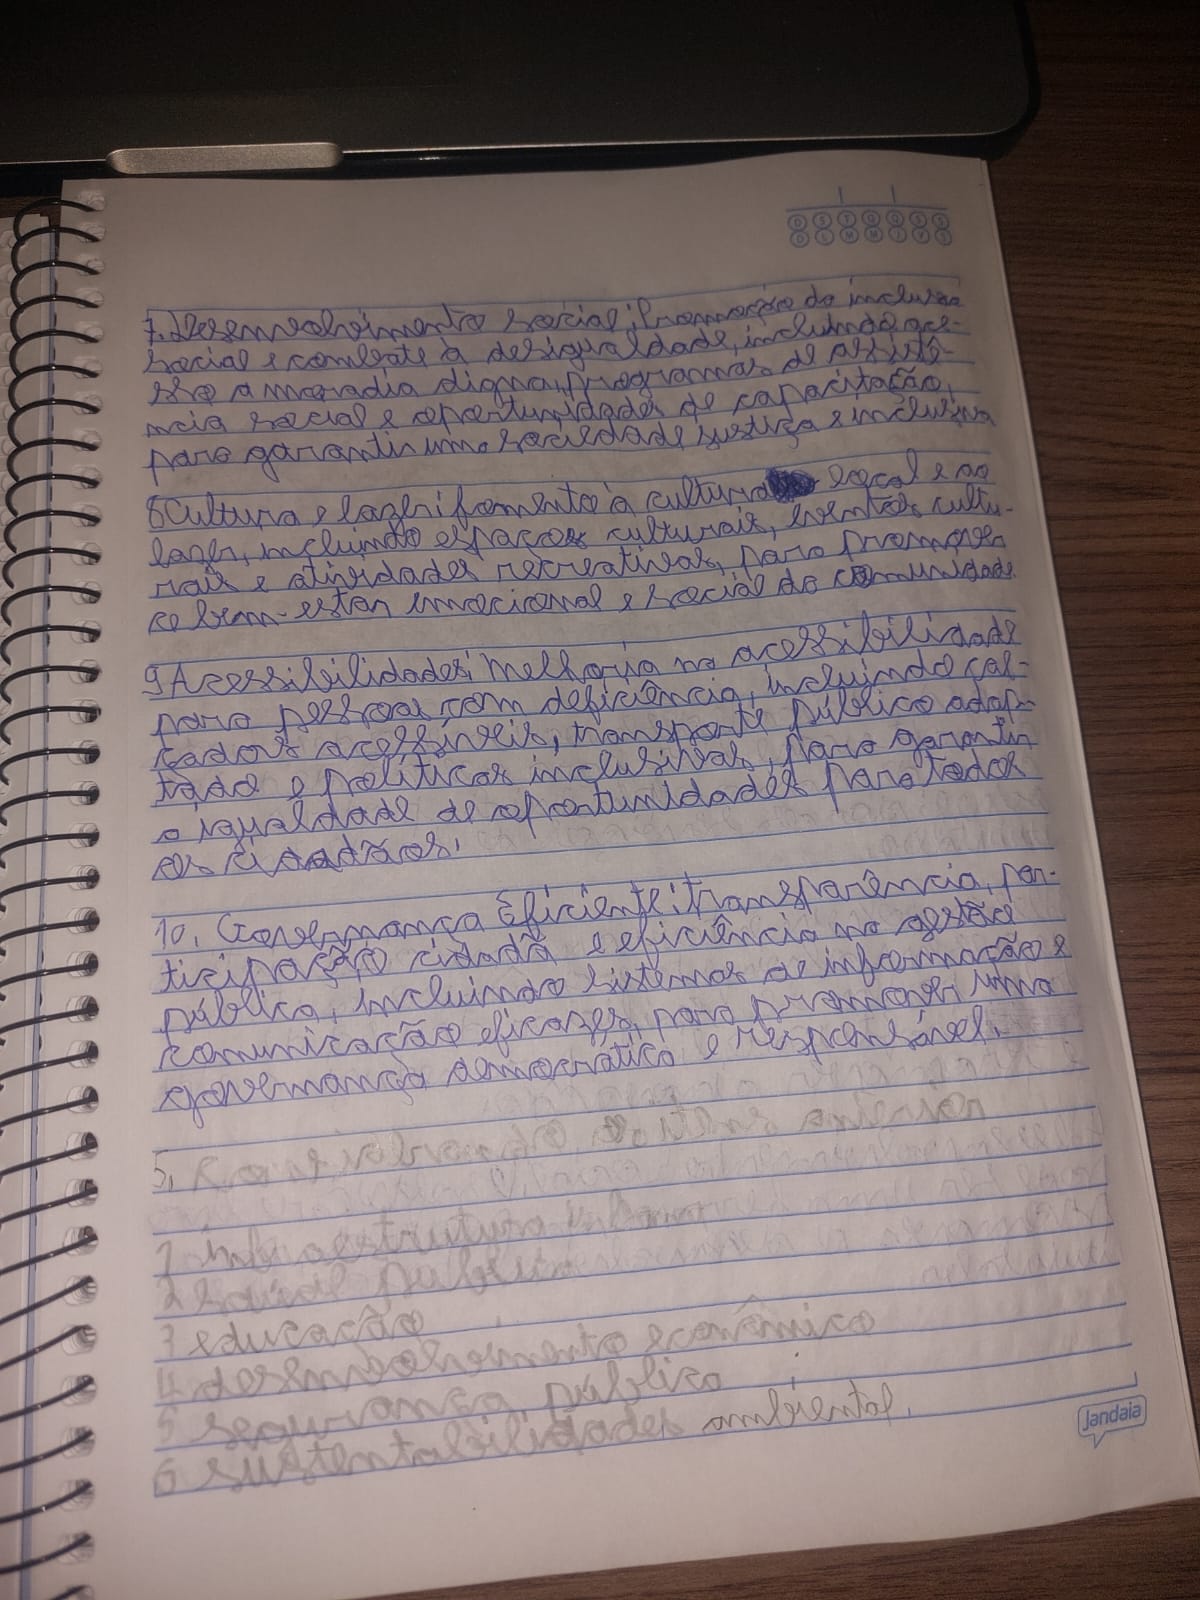 D S T Q Q S S
D L M M J V S
7. Desenvolvimento Social: Promoção da inclusão
social e combate à desigualdade, incluindo aces-
sso a moradia digna, programas de assistê-
ncia social e oportunidades de capacitação,
para garantir uma sociedade justiça e inclusiva
8 Cultura e lazer: fomento à cultura local e ao
lazer, incluindo espaços culturais, eventos cultu-
rais e atividades recreativas, para promover
o bem-estar emocional e social da comunidade.
9 Acessibilidades: Melhoria na acessibilidade
para pessoas com deficiência, incluindo cal-
çadas acessíveis, transporte público adap-
tado e políticas inclusivas, para garantir
a igualdade de oportunidades para todos
os cidadãos.
10. Governança Eficiente: transparência, par-
ticipação cidadã e eficiência na gestão
pública, incluindo sistemas de informação e
comunicação eficazes, para promover uma
governança democrática e responsável.
5.
1
2
3
4
5
6
Jandaia